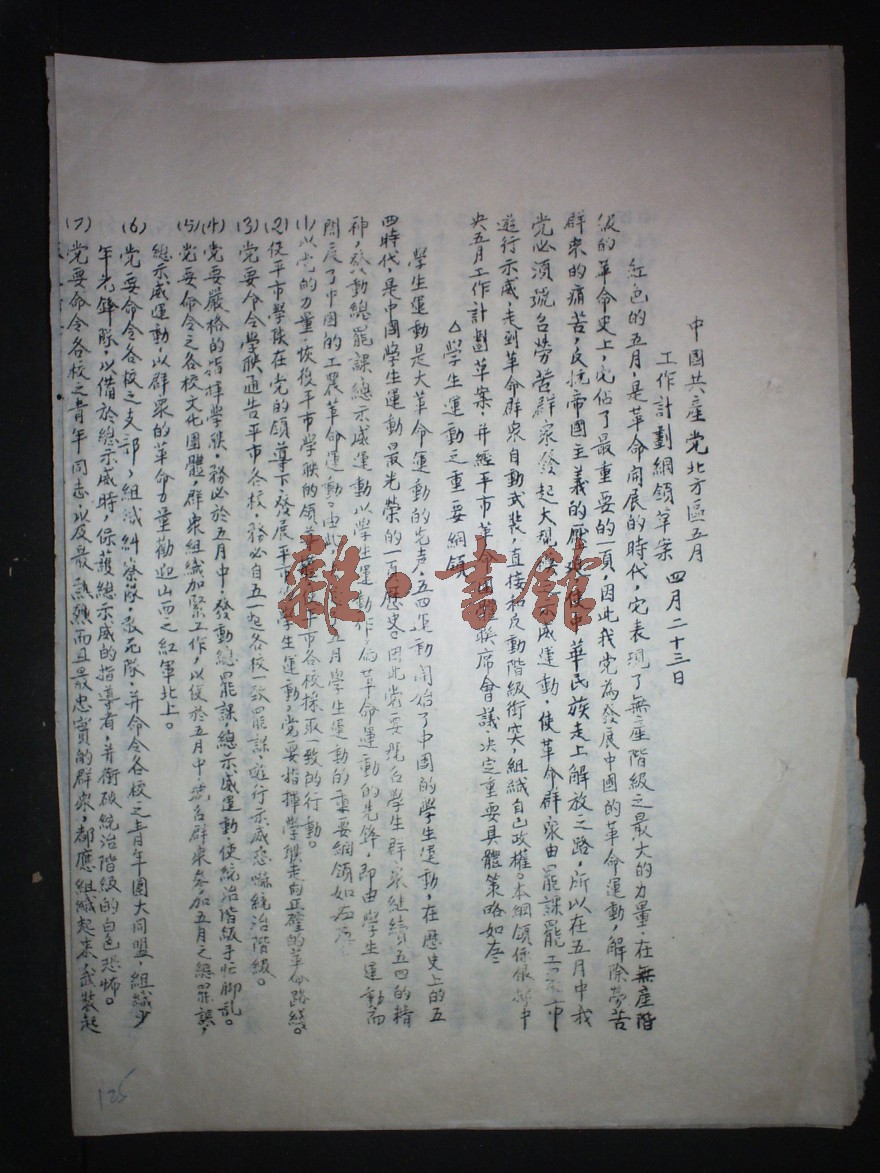 中國共產党北方區五月
工作計劃綱領草案 四月二十三日
紅色的五月,是革命開展的時代,它表現了無產階級之最大的力量,在無產階
級的革命史上,它佔了最重要的一頁,因此我党為發展中國的革命運動,解除勞苦
群衆的痛苦,反抗帝國主義的壓迫,使中華民族走上解放之路,所以在五月中我
党必須號召勞苦群衆發起大規 示威運動,使革命群衆由罷課罷工 市
遊行示威,走到革命群衆自動武裝,直接和反動階級衝突,組織自己政權。本綱領係根據中
央五月工作計劃草案,并經平市革命 聯席會議,決定重要具體策略如左:
△學生運動之重要綱領
學生運動是大革命運動的先声,五四運動開始了中國的學生運動,在歷史上的五
四時代,是中國學生運動最光榮的一頁歷史。因此党要號召學生群衆繼續五四的精
神,發動總罷課總示威運動以學生運動作為革命運動的先鋒,即由學生運動而
開展了中國的工農革命運動。由此, 五月學生運動的重要綱領如左:
(1)以党的力量,恢復平市學聯的領導 平市各校採取一致的行動。
(2)使平市學聯在党的領導下,發展平市 學生運動,党要指揮學聯走向正確的革命路綫。
(3)党要命令學聯通告平市各校,務必自五一起各校一致罷課,遊行示威恐嚇統治階級。
(4)党要嚴格的指揮學聯,務必於五月中,發動總罷課,總示威運動,使統治階級手忙脚乱。
(5)党要命令之各校文化團體,群衆組織加緊工作,以便於五月中,號召群衆參加五月之總罷課,
總示威運動,以群衆的革命力量勸迎山西之紅軍北上。
(6)党要命令各校之支部,組織糾察隊,敢死隊,并命令各校之青年團大同盟,組織少
年先鋒隊,以備於總示威時,保護總示威的指導者,并衝破統治階級的白色恐怖。
(7)党要命令各校之青年同志,以及最熱烈而且最忠實的群衆,都應組織起來,武裝起
125
雜·書館